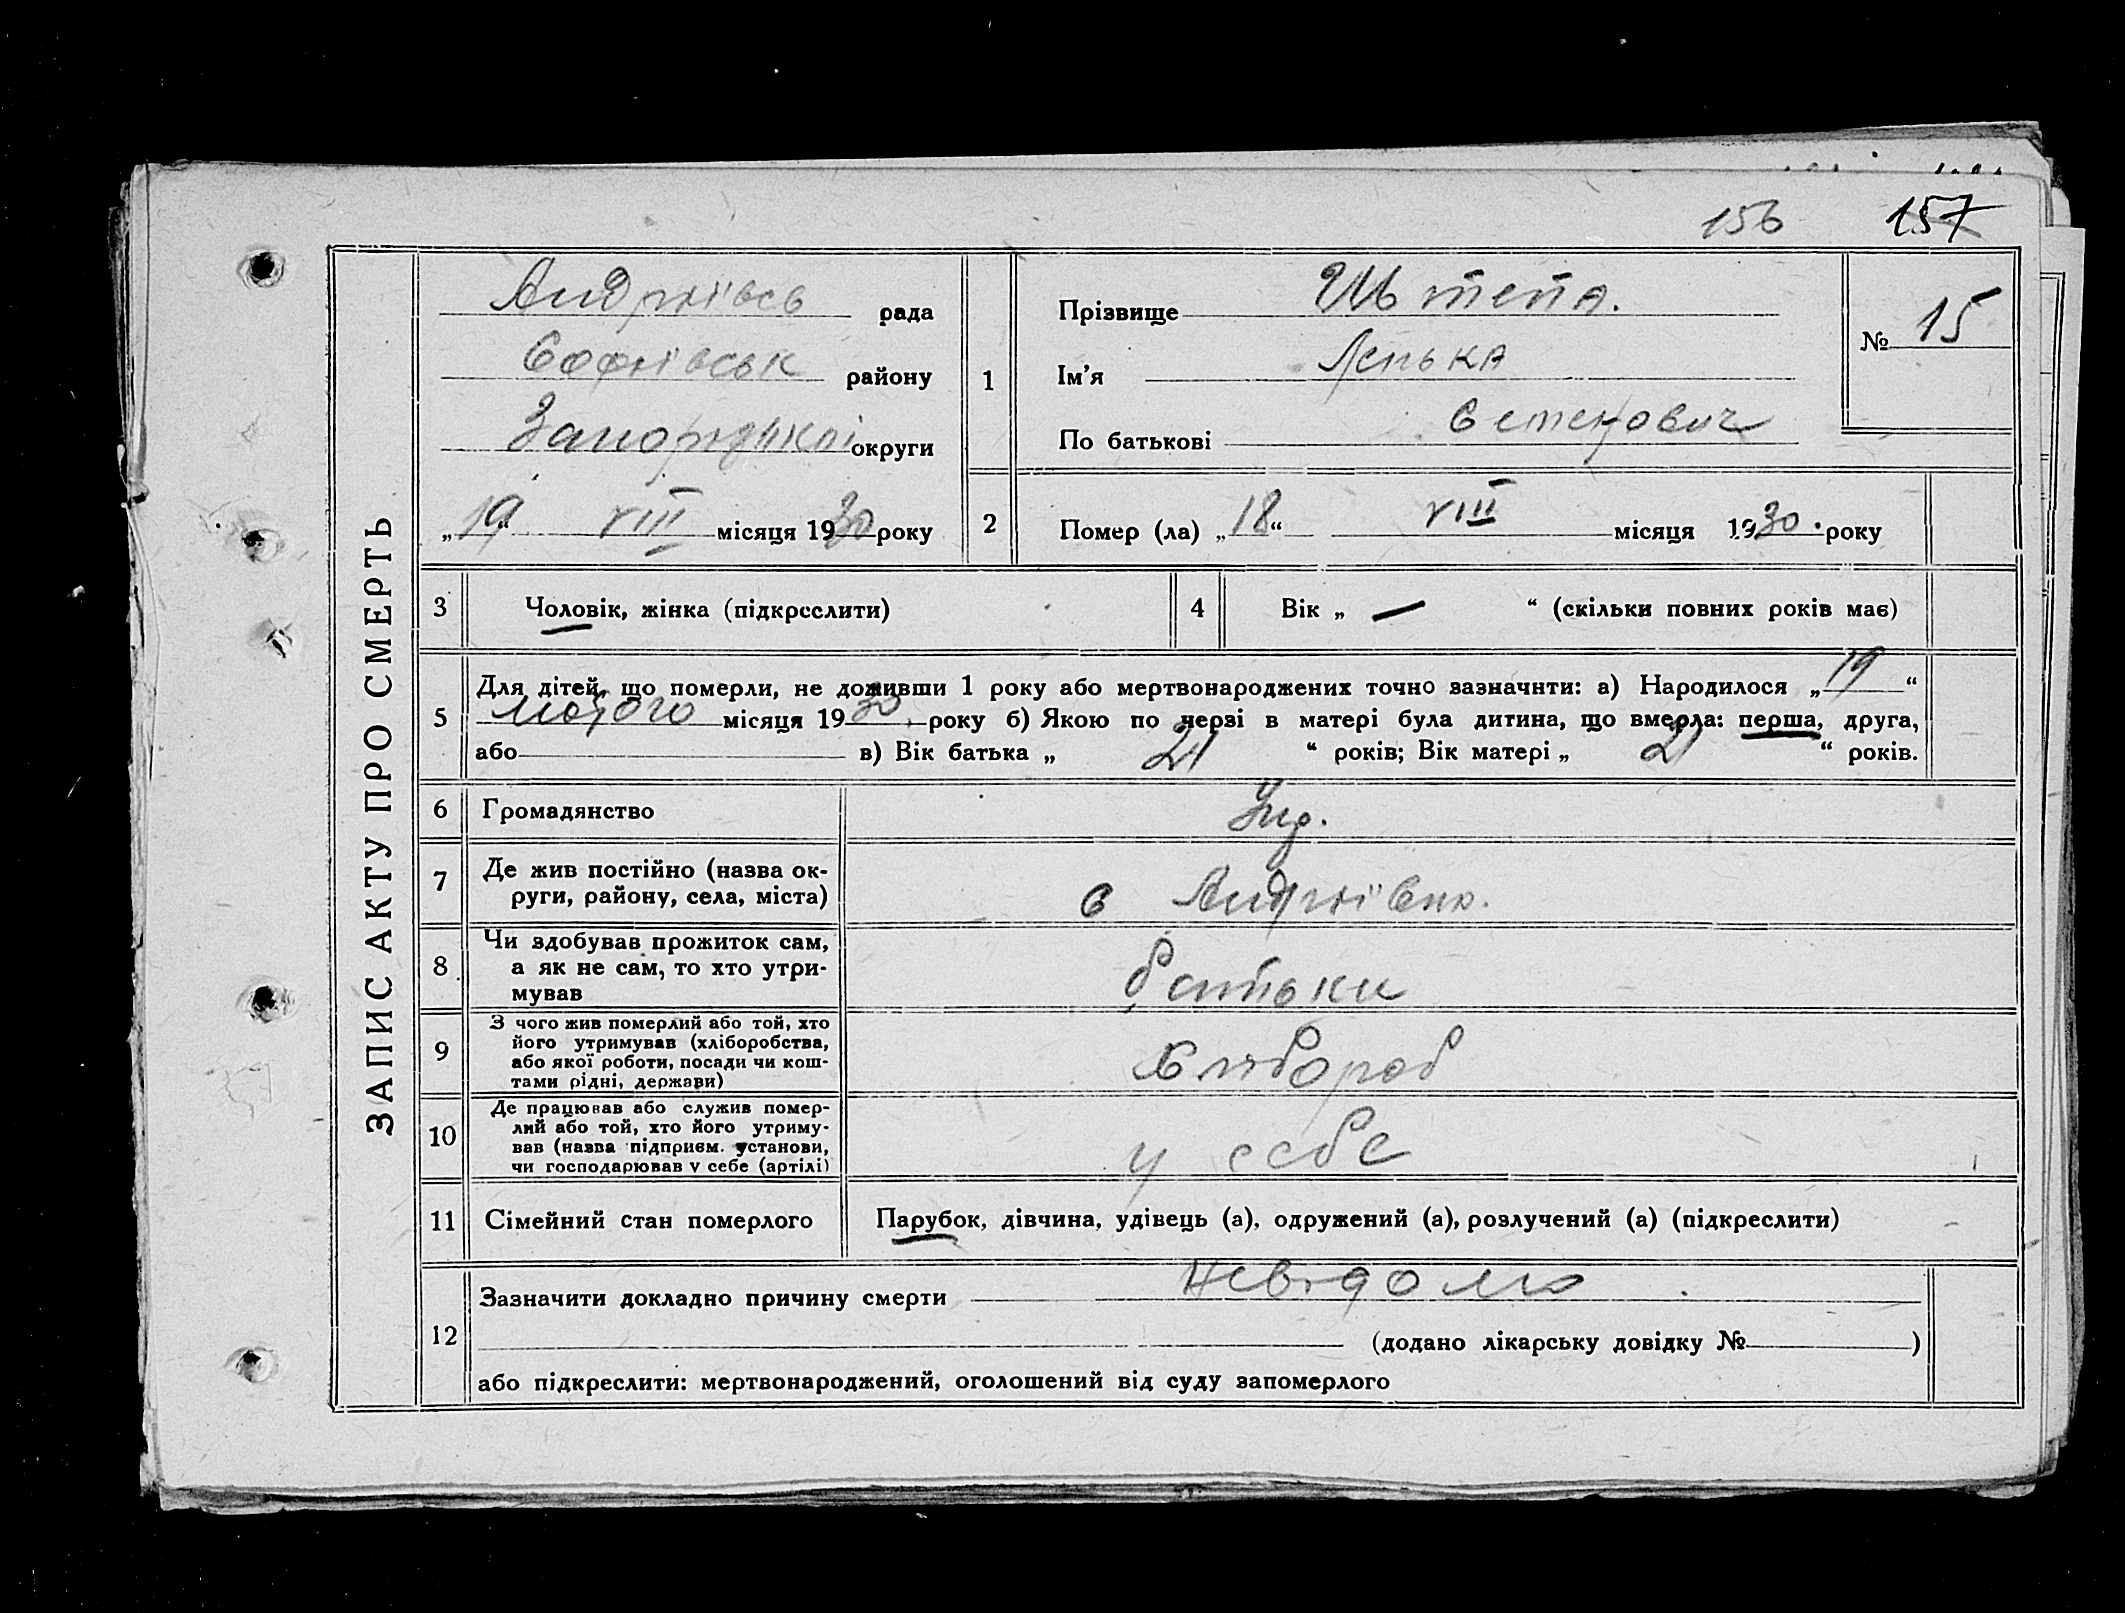 156 157
ЗАПИС АКТУ ПРО СМЕРТЬ
Андріївсь рада
Софіївськ району
Запорізької округи
„19“ VIII місяця 1930 року
1
Прізвище Штепа.
Ім'я Ленька
По батькові Семенович
№ 15
2 Помер (ла) „18“ VIII місяця 1930. року
3 Чоловік, жінка (підкреслити)
4 Вік „ — “ (скільки повних років має)
5 Для дітей, що померли, не доживши 1 року або мертвонароджених точно зазначити: а) Народилося „19“
лютого місяця 1930. року б) Якою по черзі в матері була дитина, що вмерла: перша, друга,
або в) Вік батька „ 21 “ років; Вік матері „ 21 “ років.
6 Громадянство Укр.
7 Де жив постійно (назва ок-
руги, району, села, міста)
с Андріївка.
8 Чи здобував прожиток сам,
а як не сам, то хто утри-
мував
батьки
9 З чого жив померлий або той, хто
його утримував (хліборобства,
або якої роботи, посади чи кош-
тами рідні, держави)
Хлібороб
10 Де працював або служив помер-
лий або той, хто його утриму-
вав (назва підприєм. установи,
чи господарював у себе (артілі)
у себе
11 Сімейний стан померлого Парубок, дівчина, удівець (а), одружений (а), розлучений (а) (підкреслити)
12 Зазначити докладно причину смерти невідомо
(додано лікарську довідку № )
або підкреслити: мертвонароджений, оголошений від суду запомерлого